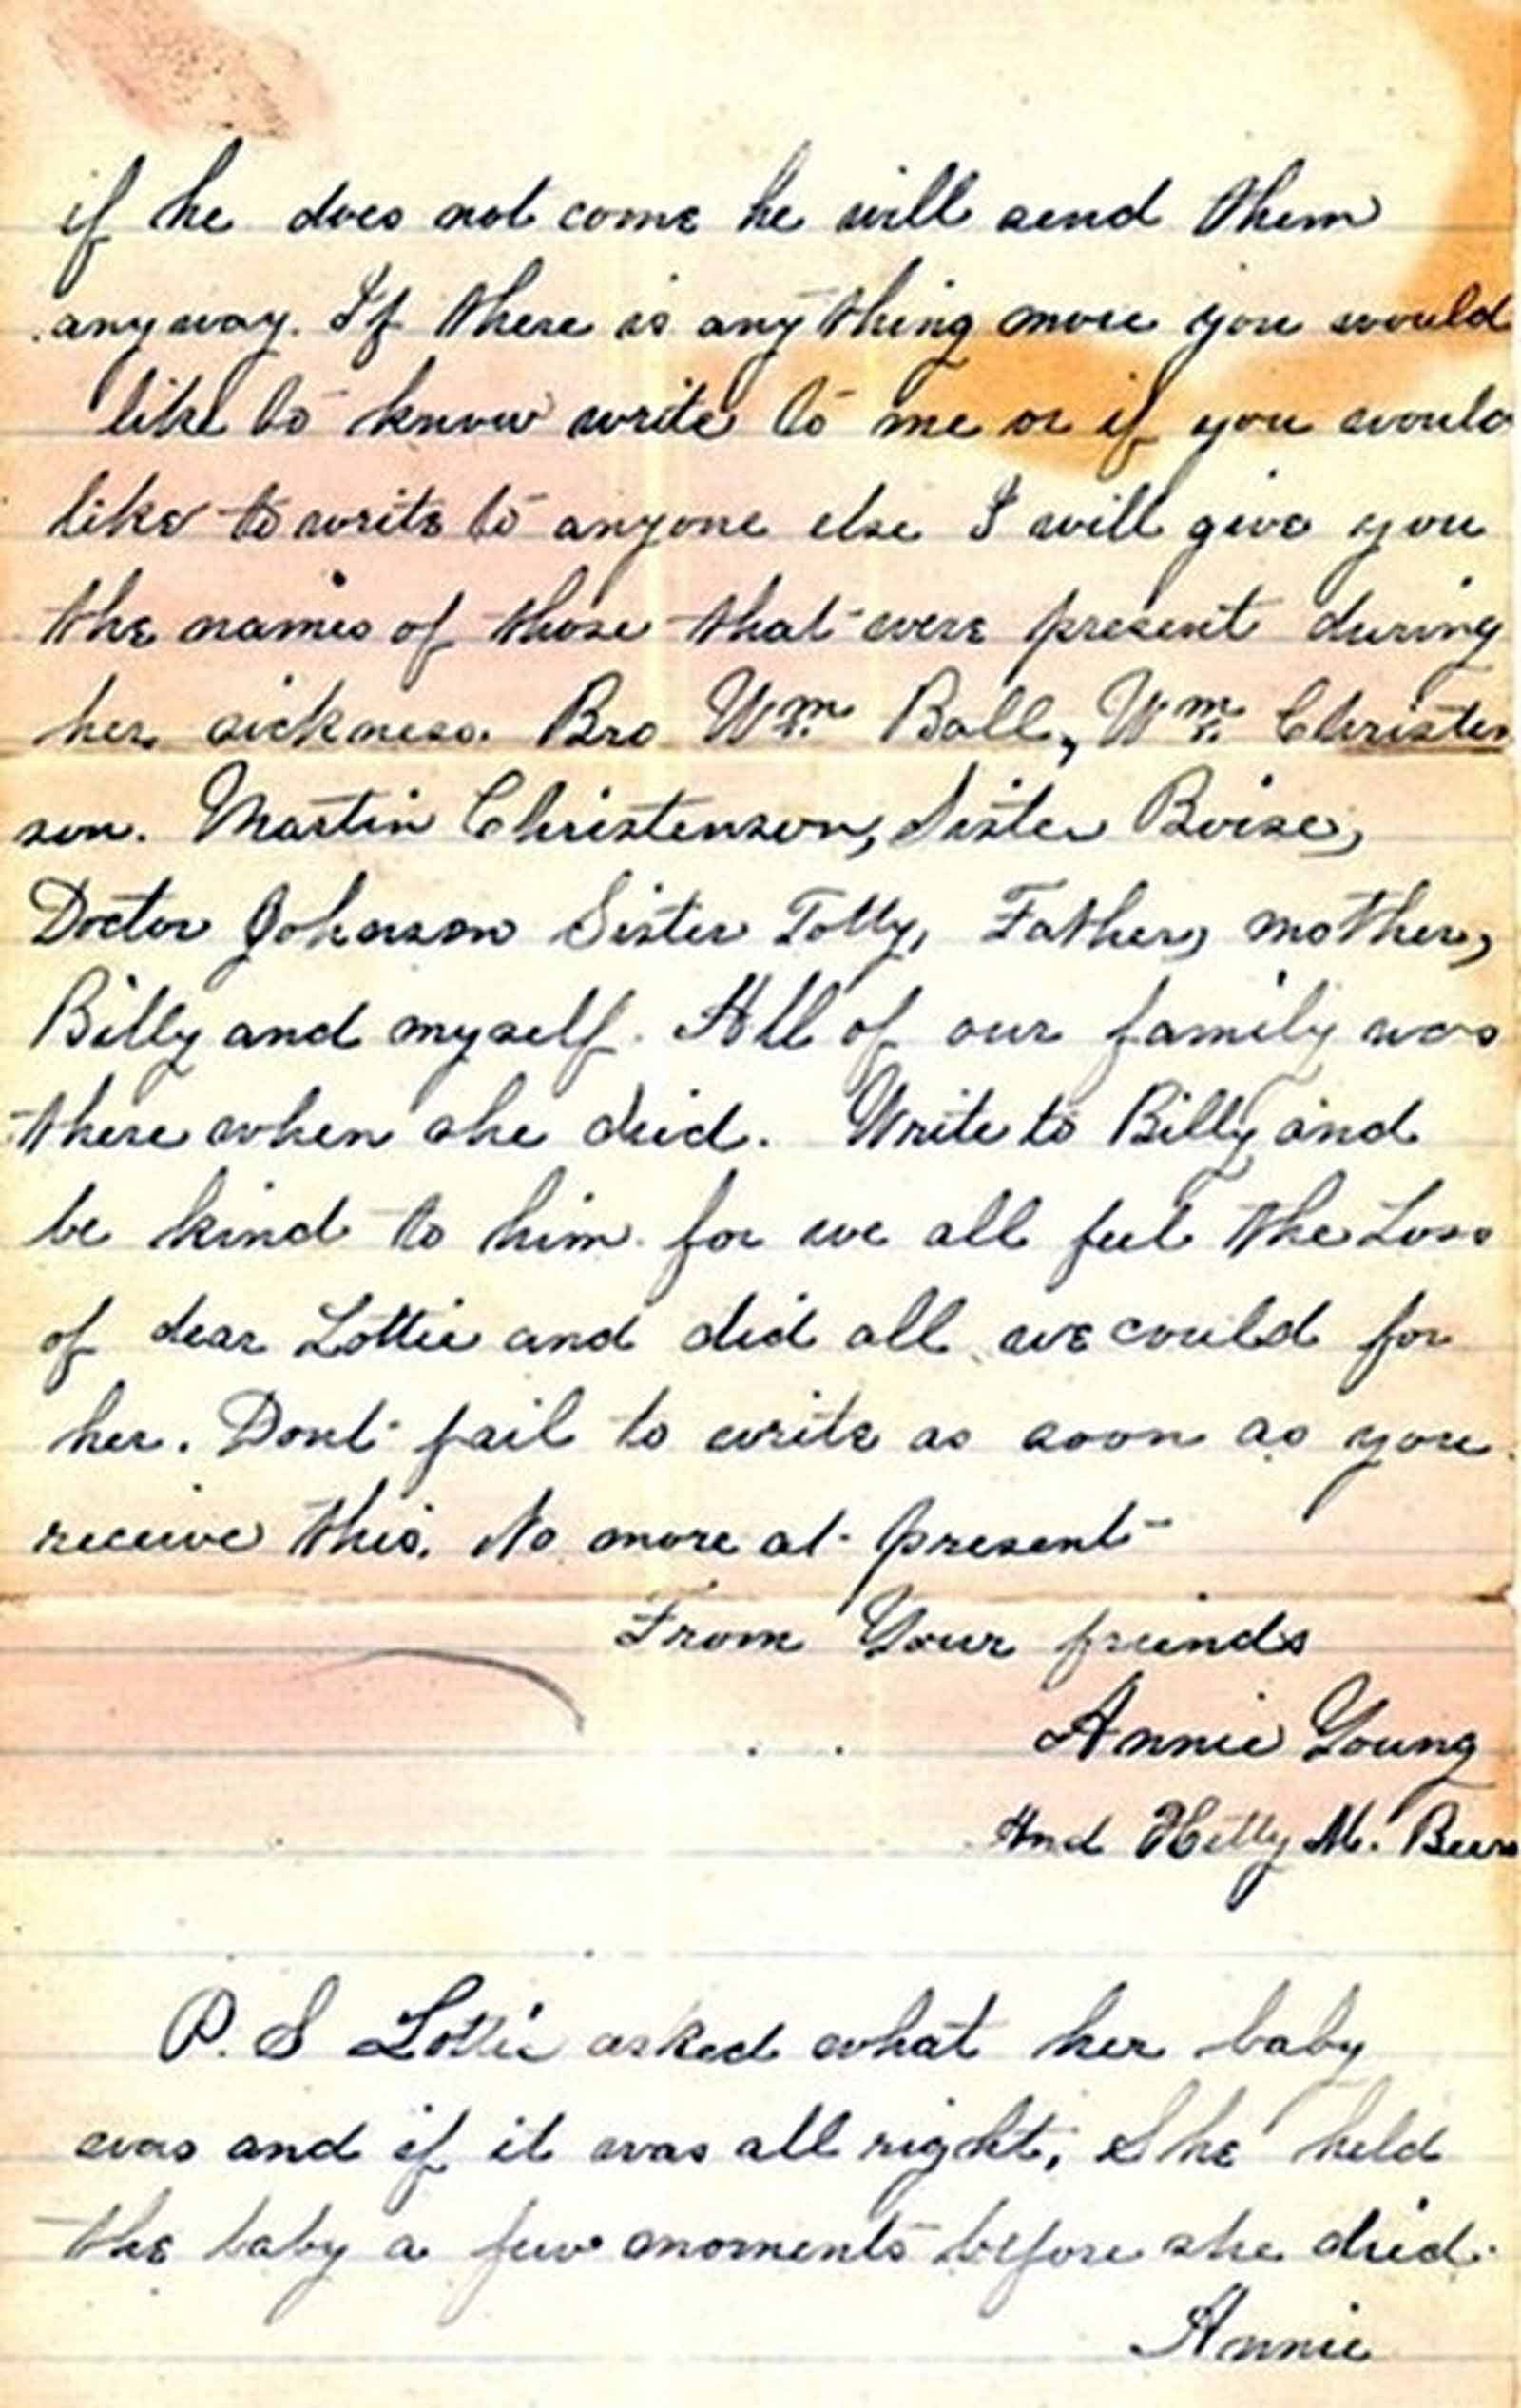 if he does not come he will send them
anyway. If there is any thing more you would
like to know write to me or if you would
like to write to anyone else I will give you
the names of those that were present during
her sickness. Bro Wm. Ball, Wm. Christen
son. Martin Christenson, Sister Boise,
Doctor Johnson Sister Tolly, Father, mother,
Billy and myself. All of our family was
there when she deid. Write to Billy and
be kind to him for we all feel the Loss
of dear Lottie and did all we could for
her. Dont fail to write as soon as you
receive this. No more at present
From Your freinds
Annie Young
And Hetty M.
P. S Lottie asked what her baby
was and if it was all right, She held
the baby a few moments before she died.
Annie